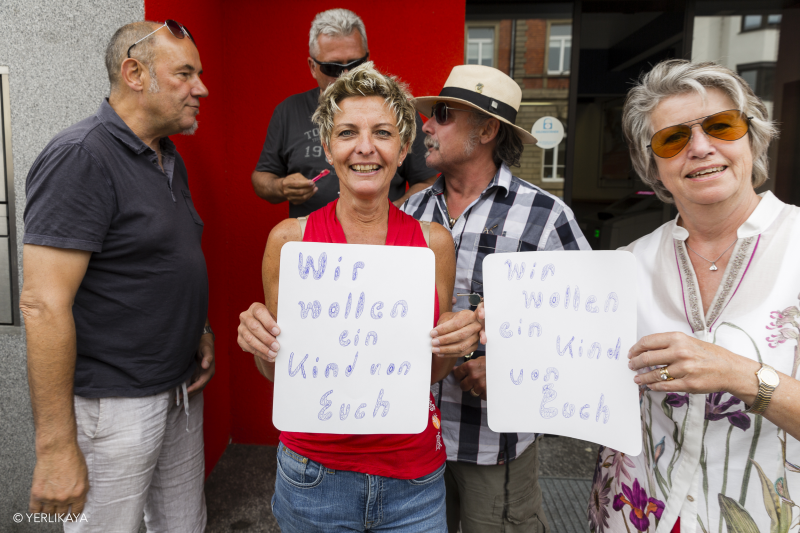 Wir
wollen
ein
Kind von
Euch
Wir
wollen
ein
Kind
von
Euch
© YERLIKAYA